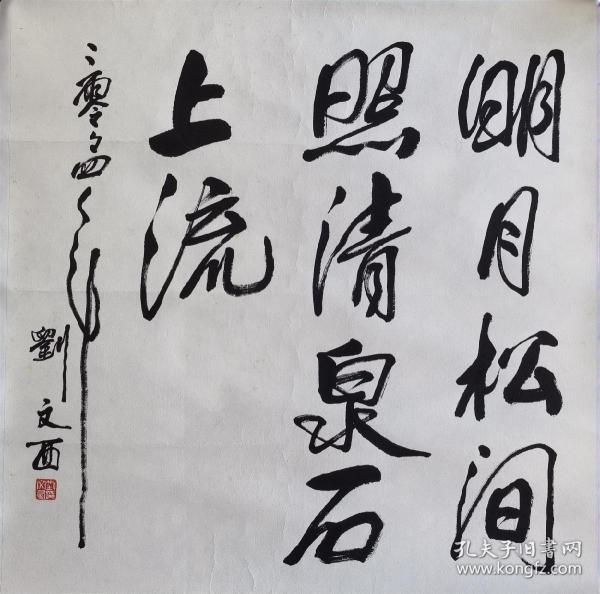 明月松间
照清泉石
上流
二零零四年
劉文西
孔夫子旧書网
www.kongfz.com